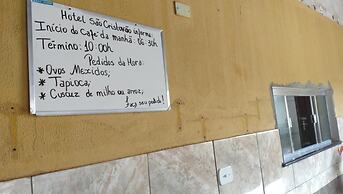 Hotel São Cristovão informa:
Início do Café da manhã: 06:30h
Término: 10:00h
Pedidos da Hora:
* Ovos Mexidos;
* Tapioca;
* Cuscuz de milho ou arroz;
Faça seu pedido!